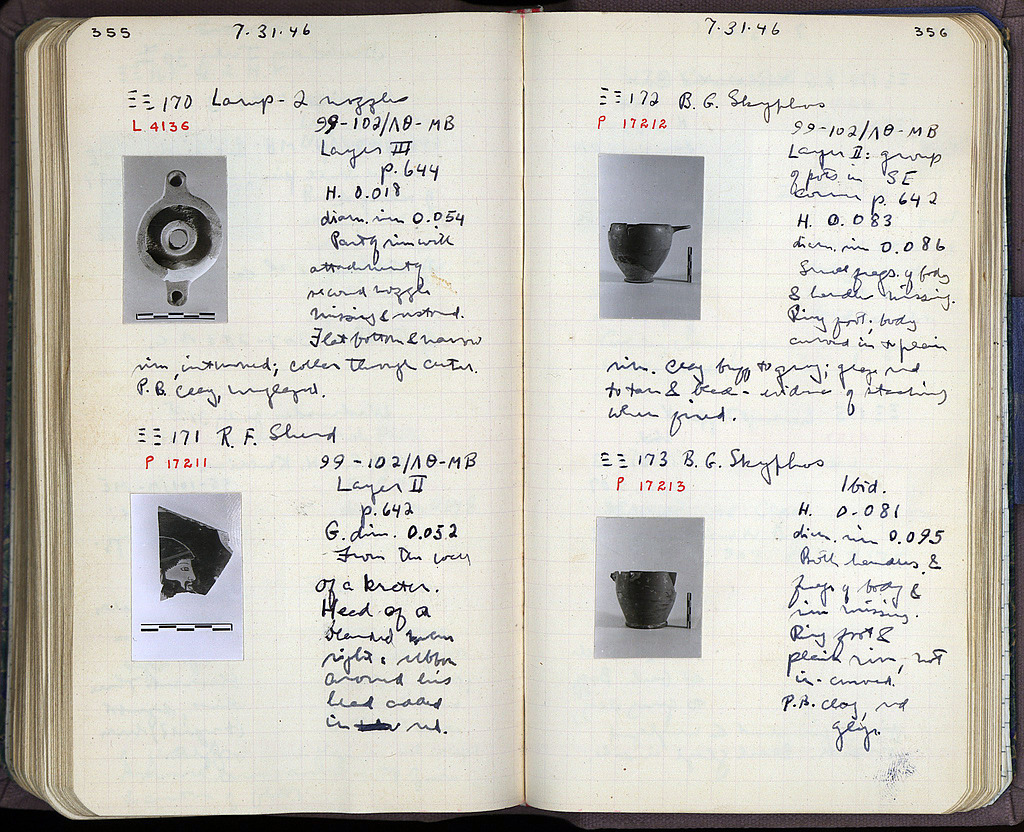 355
7.31.46
ΞΞ 170 Lamp - 2 nozzles
L 4136
99-102/ΛΘ-MB
Layer III
p. 644
H. 0.018
diam. rim 0.054
Part of rim with
attachment of
second nozzle
missing & restored.
Flat bottom & narrow
rim, inturned; collar through center.
P.B. clay, unglazed.
ΞΞ 171 R.F. Sherd
P 17211
99-102/ΛΘ-MB
Layer II
p. 642
G. dim. 0.052
From the wall
of a krater.
Head of a
bearded man
right; ribbon
around his
head added
in red.
7.31.46
356
ΞΞ 172 B.G. Skyphos
P 17212
99-102/ΛΘ-MB
Layer II: group
of pots in SE
corner p. 642
H. 0.083
diam. rim 0.086
Small frags. of body
& handle missing.
Ring foot; body
curved in to plain
rim. Clay buff to gray; glaze red
to tan & black - evidence of stacking
when fired.
ΞΞ 173 B.G. Skyphos
P 17213
Ibid.
H. 0.081
diam. rim 0.095
Both handles &
frags of body &
rim missing.
Ring foot &
plain rim, not
in-curved.
P.B. clay, red
glaze.